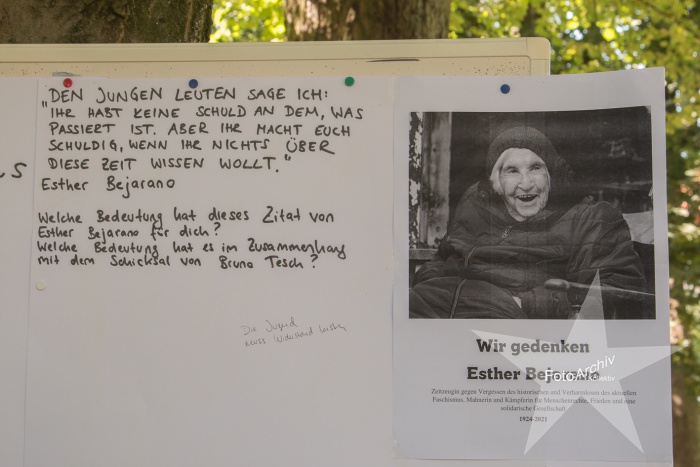 s
"DEN JUNGEN LEUTEN SAGE ICH:
IHR HABT KEINE SCHULD AN DEM, WAS
PASSIERT IST. ABER IHR MACHT EUCH
SCHULDIG, WENN IHR NICHTS ÜBER
DIESE ZEIT WISSEN WOLLT."
Esther Bejarano
Welche Bedeutung hat dieses Zitat von
Esther Bejarano für dich?
Welche Bedeutung hat es im Zusammenhang
mit dem Schicksal von Bruno Tesch?
Die Jugend
muss Widerstand leisten
Wir gedenken
Esther Bejarano
FotoArchiv
Zeitzeugin gegen Vergessen des historischen und Verharmlosen des aktuellen
Faschismus, Mahnerin und Kämpferin für Menschenrechte, Frieden und eine
solidarische Gesellschaft
1924-2021